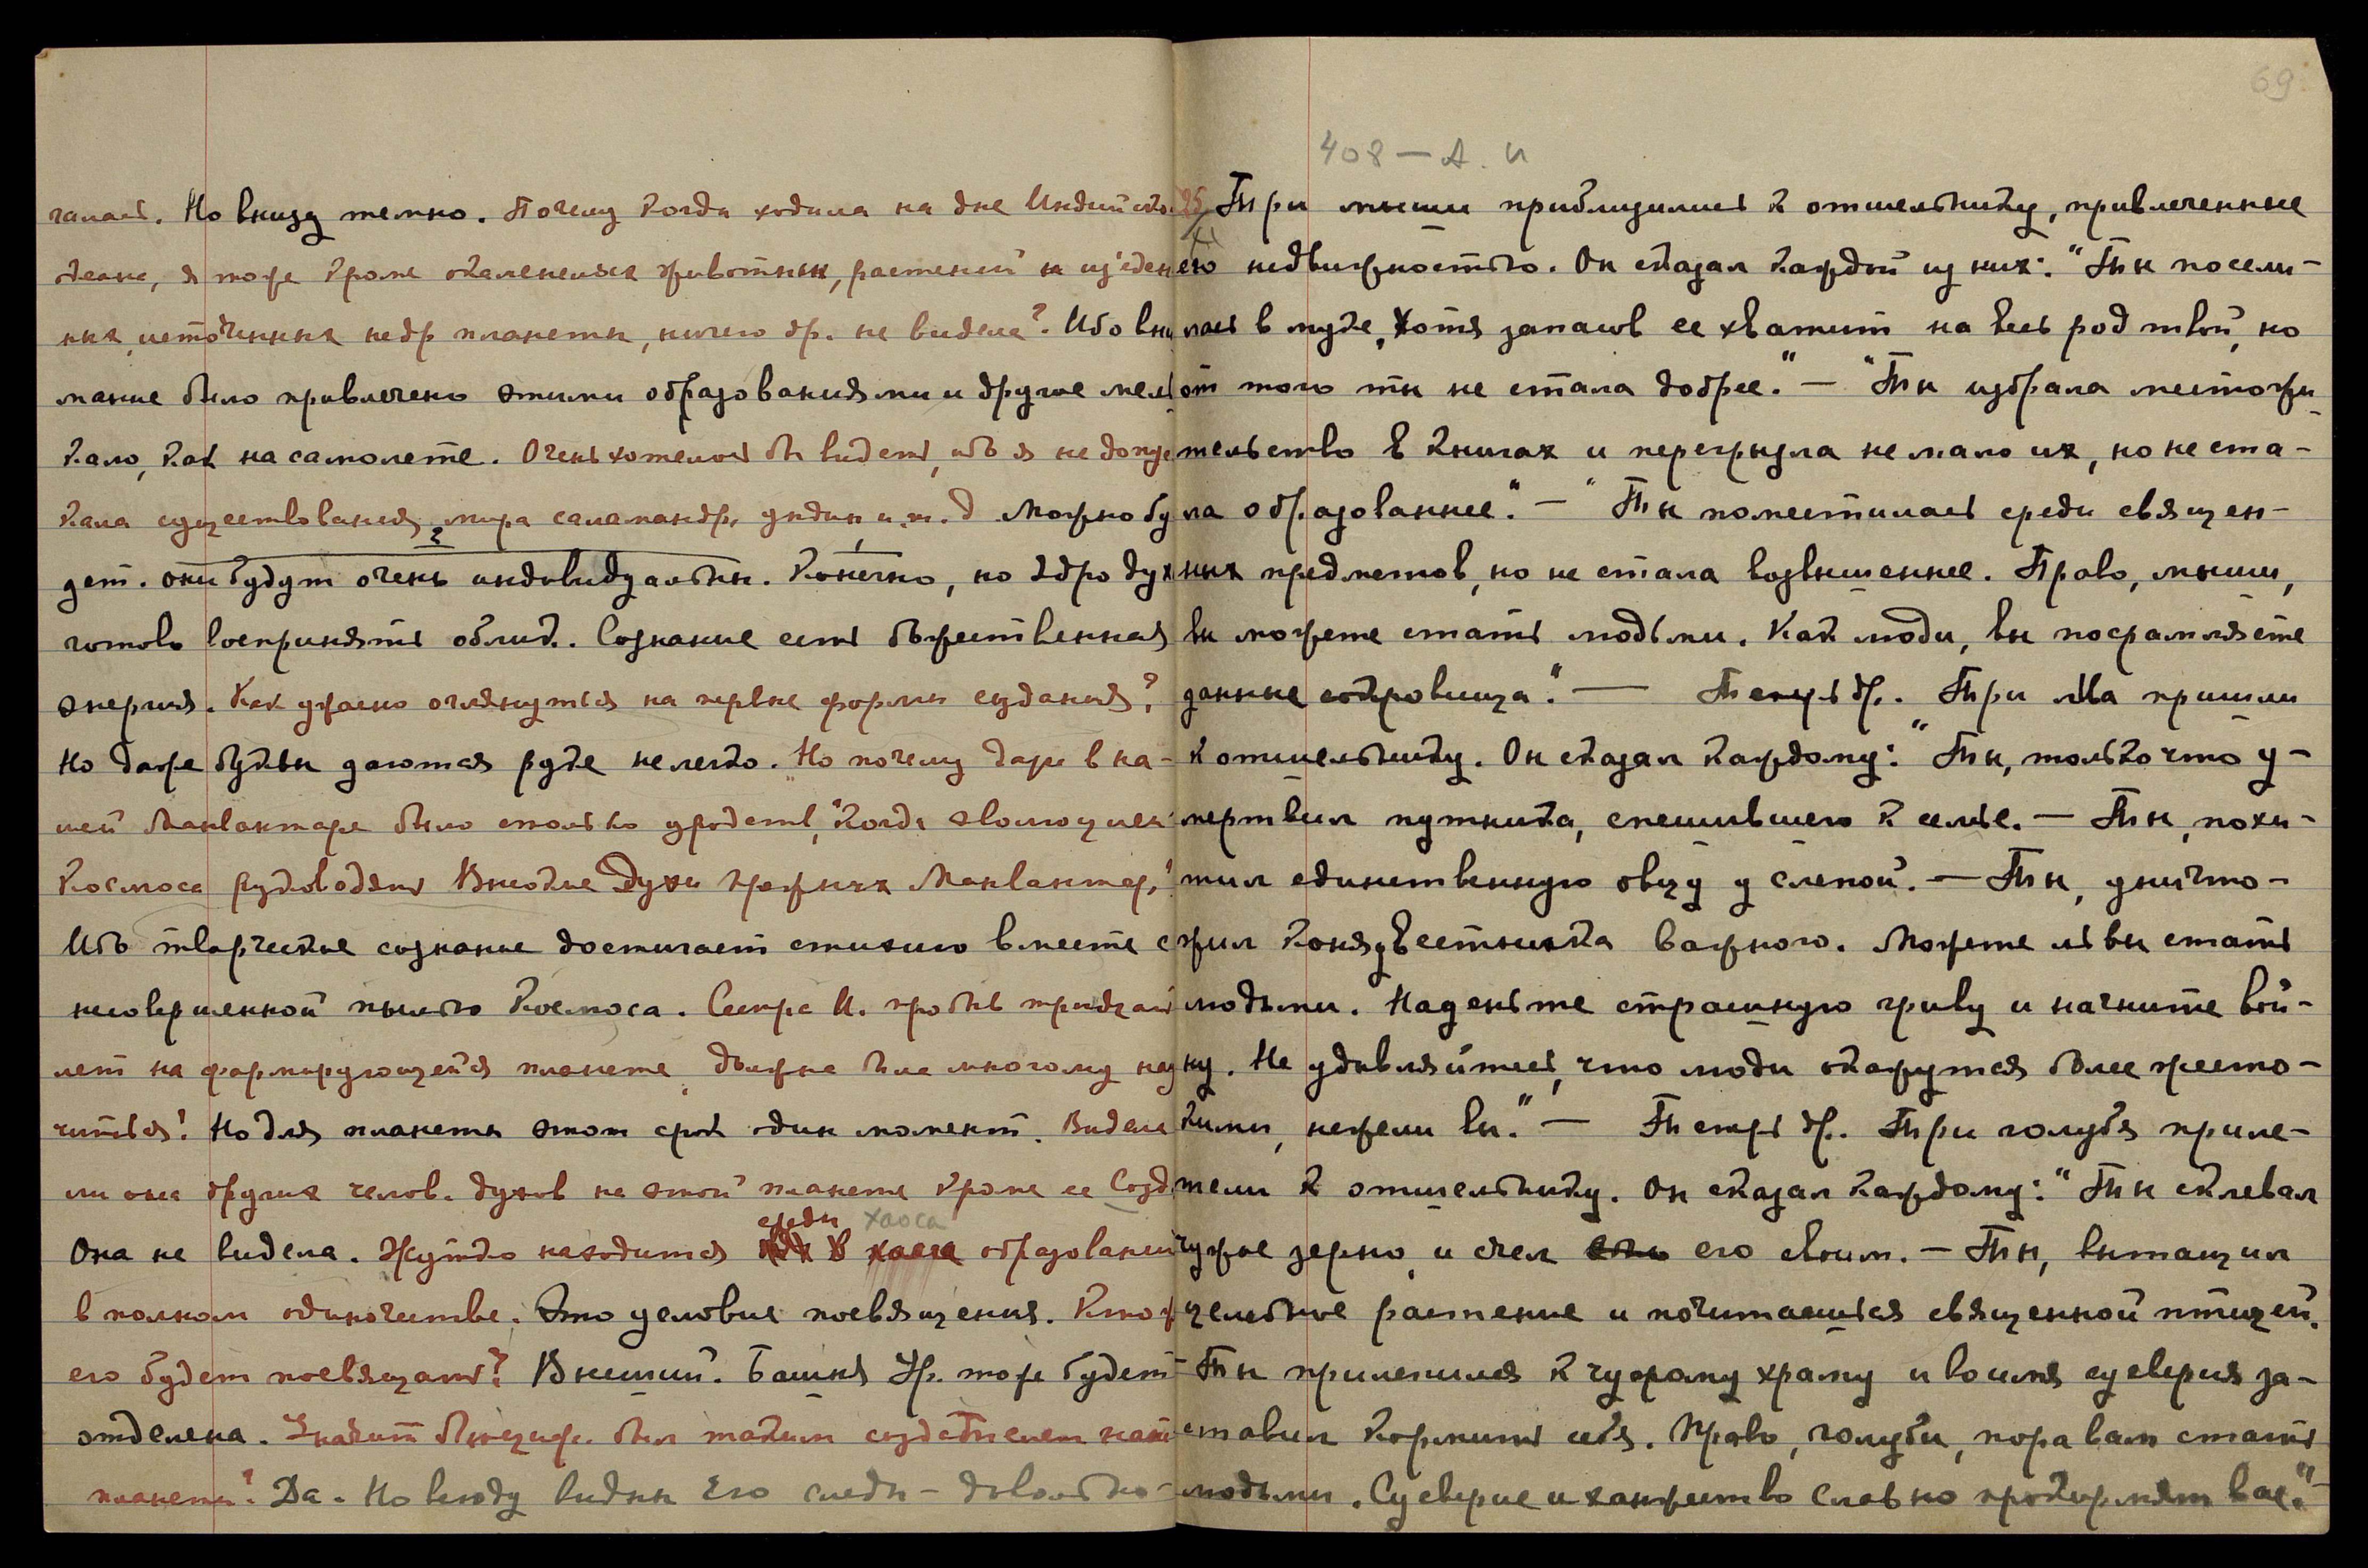 чалась. Но внизу темно. Почему когда ходила на дне Индийско
океана, я тоже кроме окаменелых животных, растений и из'еден
ных, источенных недр планеты, ничего др. не видела? Ибо вни
мание было привлечено этими образованиями и другое мель
кало, как на самолете. Очень хотелось бы видеть, ибо я не допус
кала существования мира саламандр, ундин и т. д Можно бу
дет. они будут очень индивидуальны. Конечно, но ядро духа
готово воспринять облик. Сознание есть божественная
энергия. Как ужасно оглянуться на первые формы создания?
Но даже буквы даются руке нелегко. Но почему даже в на-
шей Манвантаре было столько уродств, когда эволюцией
Космоса руководят Высокие Духи прежних Манвантар,?
Ибо творческое сознание достигает стихию вместе с
несовершенной пылью Космоса. Сестра И. пробыв тридцать
лет на формирующейся планете, должна была многому нау
читься! Но для планеты этот срок один момент. Видела
ли она других челов. духов на этой планете кроме ее Созд
Она не видела. Жутко находиться среди хаоса образований
в полном одиночестве. Это условие посвящения. Кто ж
его будет посвящать? Высший. Башня Ур. тоже будет
отделена. Значит Люциф. был таким создателем наш
планеты? Да. Но всюду видны Его следы – довольно-
69.
408 – А. И
25. Три мыши приблизились к отшельнику, привлеченные
его недвижностью. Он сказал каждой из них: "Ты посели-
лась в муке, хотя запасов ее хватит на весь род твой, но
от того ты не стала добрее." – "Ты избрала местожи-
тельство в книгах и перегрызла немало их, но не ста-
ла образованнее." – "Ты поместилась среди священ-
ных предметов, но не стала возвышеннее. Право, мыши,
вы можете стать людьми. Как люди, вы посрамляете
данные сокровища." — Теперь др. Три льва пришли
к отшельнику. Он сказал каждому: "Ты, только что у-
мертвил путника, спешившего к семье. – Ты, похи-
тил единственную овцу у слепой. – Ты, уничто-
жил коня у вестника важного. Можете львы стать
людьми. Наденьте страшную гриву и начните вой-
ну. Не удивляйтесь, что люди окажутся более жесто-
кими, нежели вы." – Теперь др. Три голубя приле-
тели к отшельнику. Он сказал каждому: "Ты склевал
чужое зерно, и счел его своим. – Ты, вытащил
целебное растение и почитаешься священной птицей.
– Ты прилепился к чужому храму и во имя суеверия за-
ставил кормить себя. Право, голуби, пора вам стать
людьми. Суеверие и ханжество славно прокормят вас."